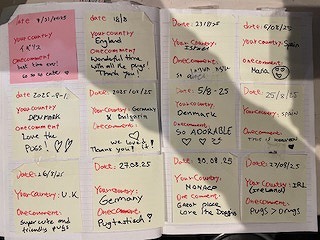 date 8/21/2025
your country
イギリス
One comment
date 18/8
Your country
England
One comment
Wonderful time
with all the pugs!
Thank you!
Date:
Your Country:
ISRAEL
One comment:
so
Date: 5/08/25
Your Country: Spain
One comment:
date 2025-8-1
your country
DENMARK
One comment
Love the
PUGS! ♡♡
Date:
Your Country: Germany
X Bulgaria
One comment:
We love it!
Thank you!
Date: 5/8-25
Your Country:
Denmark
One comment:
So ADORABLE
♡ ♡ ♡
Date: 25/8/25
Your country: SPAIN
One comment:
This is heaven
Date:
Your Country: U.K
One comment:
Super cute and
friendly pugs
Date: 27.08.25
Your Country:
Germany
One Comment:
Pugtastisch ♡
Date: 30.08.25
Your Country:
MONACO
One Comment:
Great place
Love the Doggos
Date: 27/08/25
Your Country: IRL
(IRELAND)
One Comment:
Pugs > Drugs